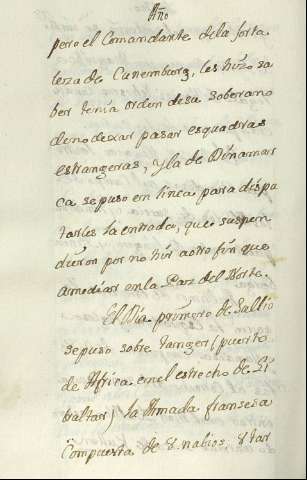 Año
pero el Comandante dela forta
leza de Cunemburg, les hizo sa
ber tenía orden desu soberano
deno dexar pasar esquadras
estrangeras, y la de Dinamar
ca sepuso em linea para dispu
tarles la entrada, que suspen
dieron por no hir aotro fin que
amediar en la Paz del Norte.
El Dia primero de Jullio
sepuso sobre tanger (puerto
de Africa en el estrecho de Gi
baltar) la Armada fransesa
Compuesta de 8 nabios, 8 tar